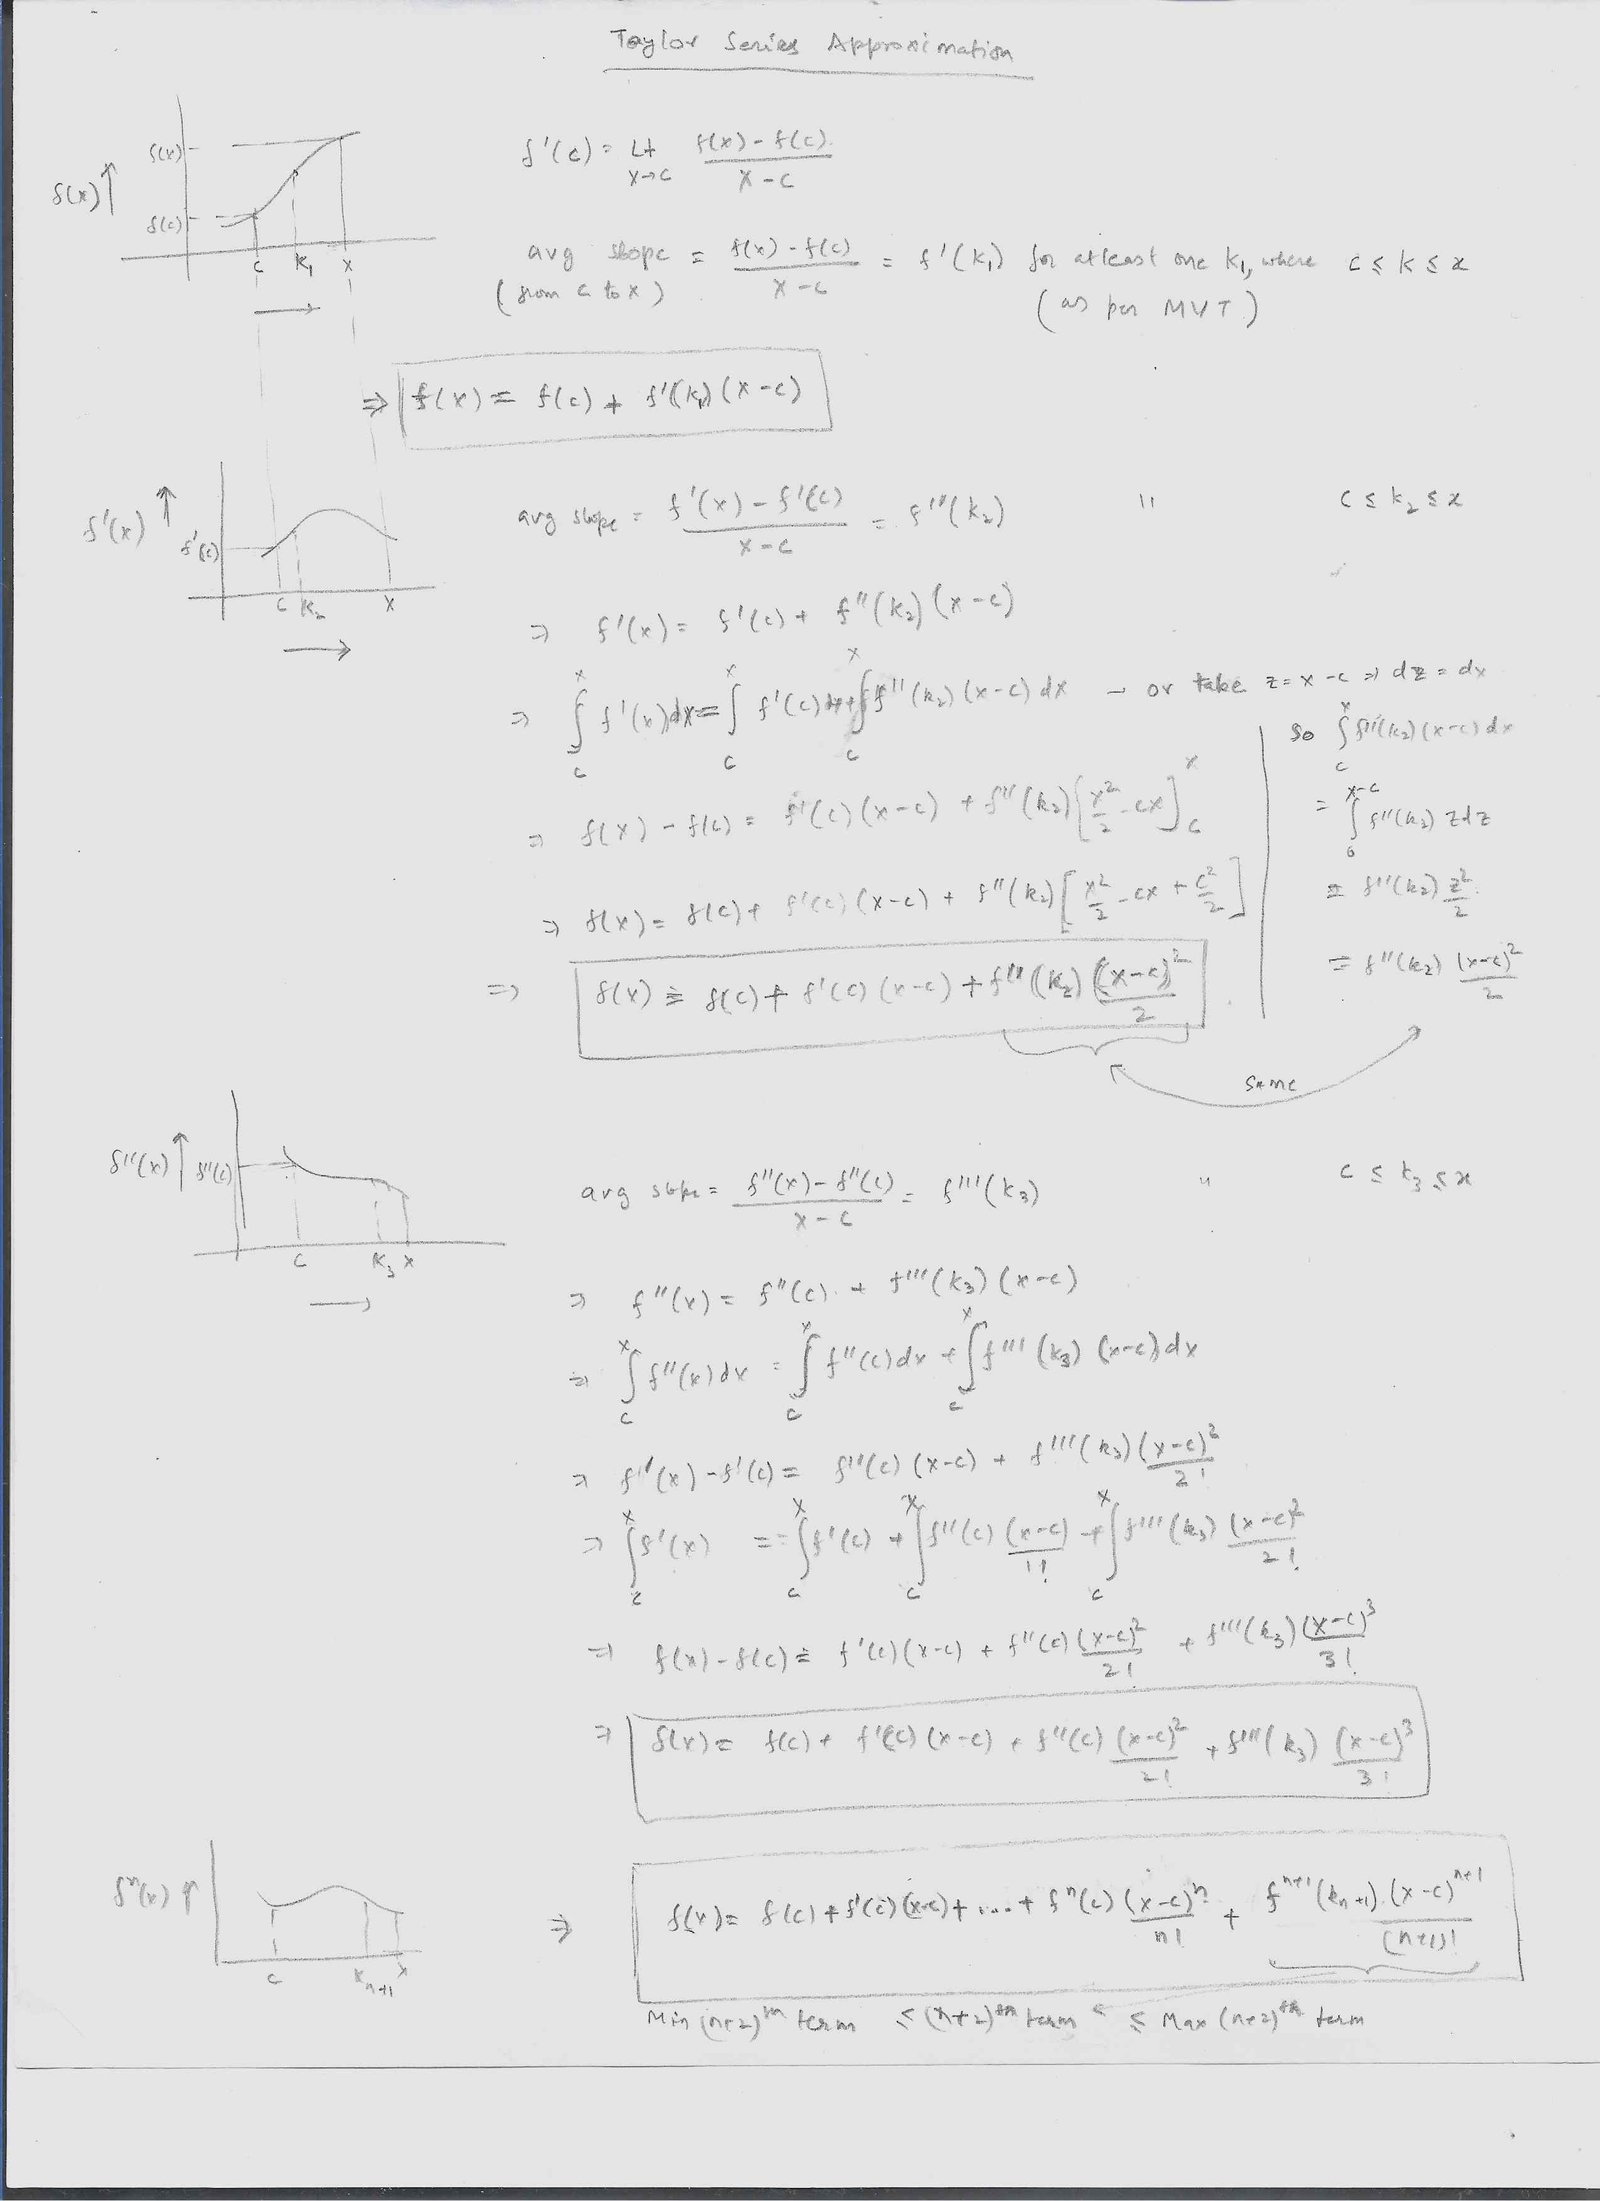 Taylor Series Approximation
f(x) ↑
f(x)
f(c)
c k₁ x
f'(c) = Lt x→c (f(x) - f(c))/(x - c)
avg slope = (f(x) - f(c))/(x - c) = f'(k₁) for atleast one k₁, where c ≤ k ≤ x
(from c to x) (as per MVT)
⇒ f(x) = f(c) + f'(k₁)(x - c)
f'(x) ↑
f'(c)
c k₂ x
avg slope = (f'(x) - f'(c))/(x - c) = f''(k₂) " c ≤ k₂ ≤ x
⇒ f'(x) = f'(c) + f''(k₂)(x - c)
⇒ ∫_c^x f'(x)dx = ∫_c^x f'(c)dx + ∫_c^x f''(k₂)(x - c)dx – or take z = x - c ⇒ dz = dx
⇒ f(x) - f(c) = f'(c)(x - c) + f''(k₂)[x²/2 - cx]_c^x
⇒ f(x) = f(c) + f'(c)(x - c) + f''(k₂)[x²/2 - cx + c²/2]
⇒ f(x) = f(c) + f'(c)(x - c) + f''(k₂)(x - c)²/2
so ∫_c^x f''(k₂)(x - c)dx
= ∫_0^(x-c) f''(k₂) z dz
= f''(k₂) z²/2
= f''(k₂) (x - c)²/2
same
f''(x) ↑
f''(c)
c k₃ x
avg slope = (f''(x) - f''(c))/(x - c) = f'''(k₃) " c ≤ k₃ ≤ x
⇒ f''(x) = f''(c) + f'''(k₃)(x - c)
⇒ ∫_c^x f''(x)dx = ∫_c^x f''(c)dx + ∫_c^x f'''(k₃)(x - c)dx
⇒ f'(x) - f'(c) = f''(c)(x - c) + f'''(k₃)(x - c)²/2!
⇒ ∫_c^x f'(x) = ∫_c^x f'(c) + ∫_c^x f''(c)(x - c)/1! + ∫_c^x f'''(k₃)(x - c)²/2!
⇒ f(x) - f(c) = f'(c)(x - c) + f''(c)(x - c)²/2! + f'''(k₃)(x - c)³/3!
⇒ f(x) = f(c) + f'(c)(x - c) + f''(c)(x - c)²/2! + f'''(k₃)(x - c)³/3!
fⁿ(x) ↑
c kₙ₊₁ x
⇒ f(x) = f(c) + f'(c)(x - c) + ... + fⁿ(c)(x - c)ⁿ/n! + fⁿ⁺¹(kₙ₊₁).(x - c)ⁿ⁺¹/(n+1)!
Min (n+2)th term ≤ (n+2)th term ≤ Max (n+2)th term